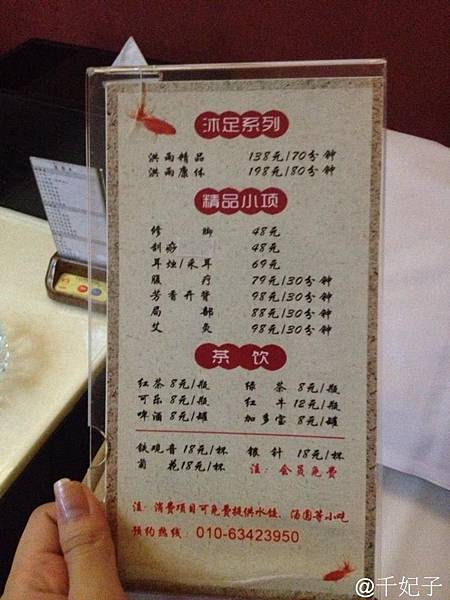 沐足系列
洪雨精品 138元/70分钟
洪雨康体 198元/80分钟
精品小项
修脚 48元
刮痧 48元
耳烛/采耳 69元
腹疗 79元/30分钟
芳香开背 98元/30分钟
局部 88元/30分钟
艾灸 98元/30分钟
茶饮
红茶 8元/瓶 绿茶 8元/瓶
可乐 8元/瓶 红牛 12元/瓶
啤酒 8元/罐 加多宝 8元/罐
铁观音 18元/杯 银针 18元/杯
菊花 18元/杯 注：会员免费
注：消费项目可免费提供水饺、汤圆等小吃
预约热线：010-63423950
@千妃子